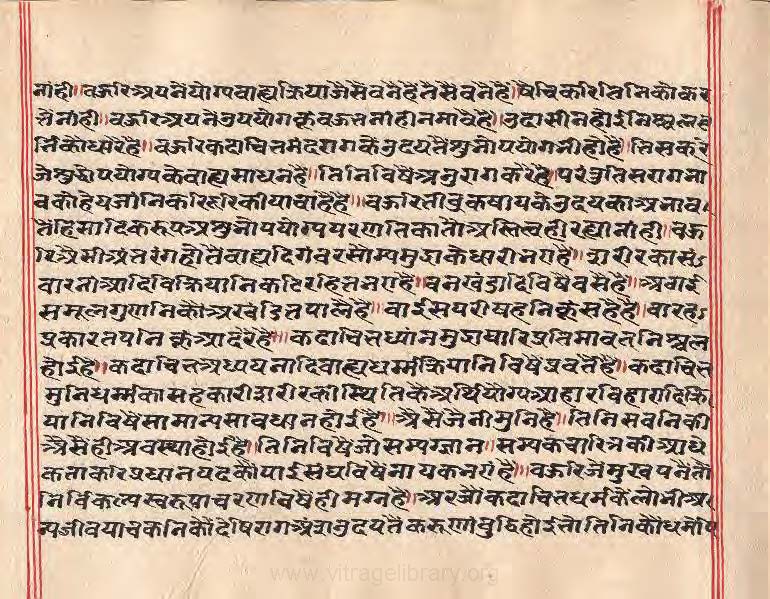 नांही॥ बहुरि अपनै योग्य बाह्य क्रिया जैसै बनै है तैसै बनै है॥ षैंचि करि तिनिकौ कर
तै नांही॥ बहुरि अपनै उपयोगकूं बहुत नांही भ्रमावै है॥ उदासीन होइ निश्चल वृ
त्तिकौं धारै है॥ बहुरि कदाचित मंदरागके उदयतै शुभोपयोग भी हो है॥ तिसकरि
जे शुद्धोपयोगके बाह्य साधन है॥ तिनिविषै अनुराग करै है॥ परंतु तिस रागभा
वकौ हेय जांनिकरि दूरि कीया चाहै है॥ बहुरि तीव्र कषायके उदयका अभाव
तै हिंसादिकरूप अशुभोपयोग परणतिका तौ अस्तित्व ही रह्या नांही॥ बहु
रि असी अंतरंग होतै बाह्य दिगंबर सौम्यमुद्राके धारी भए है॥ शरीरका सं
वारना आदि विक्रियानिकरि रहित भए है॥ वनखंडादिविषै वसै है॥ अठाई
स मूलगुणनिकौ अखंडित पालै है॥ बाईस परीषहनिकूं सहै है॥ बारह
प्रकार तपनिकूं आदरै है॥ कदाचित ध्यांनमुद्राधारि प्रतिमावत निश्चल
होइ है॥ कदाचित अध्ययनादि बाह्य धर्म्मक्रियानिविषै प्रवर्तै है॥ कदाचित
मुनिधर्म्मका सहकारी शरीरकी स्थितिकै अर्थि योग्य आहार विहारादि क्रि
यानिविषै सामान्य सावधान होइ है॥ असै जैनी मुनि है॥ तिनि सबनिकी
असै ही अवस्था होइ है॥ तिनिविषै जो सम्यग्ज्ञान॥ सम्यकचारित्रकी आधि
कताकरि प्रधानपदकौ पाइ संघविषै नायक भए है॥ बहुरि जे मुख्यपनै तौ
निर्विकल्प स्वरूपाचरणविषै ही मग्न है॥ अर जौ कदाचित धर्मके लोभी अ
न्य जीव याचक तिनिकौ देषि राग अंश उदयतै करुणाबुद्धि होइ तौ तिनिकौ धर्मोप
www.vitragelibrary.org